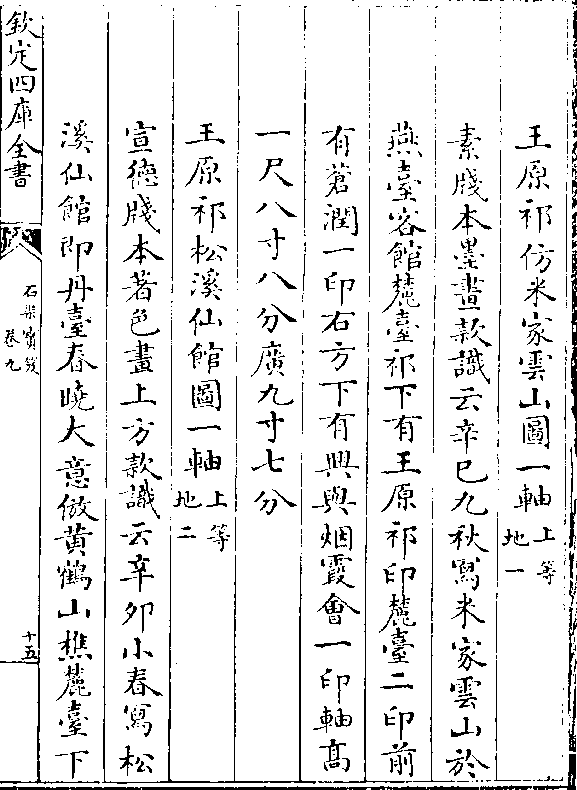 王原祁仿米家雲山圖一軸上等地一
素牋本墨畫款識云辛巳九秋寫米家雲山於
燕臺客館麓臺祁下有王原祁印麓臺二印前
有蒼潤一印右方下有興與烟霞會一印軸高
一尺八寸八分廣九寸七分
王原祁松溪仙館圖一軸上等地二
宣德牋本著色畫上方款識云辛卯小春寫松
溪仙館即丹臺春曉大意倣黃鶴山樵麓臺下
欽定四庫全書
石渠寶笈
卷九
十五